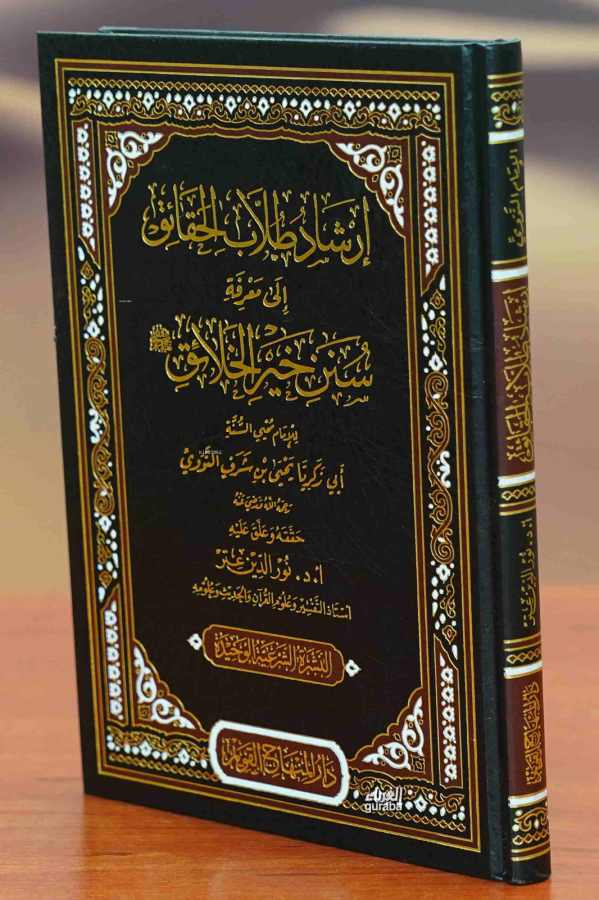 إرشاد طلاب الحقائق
إلى معرفة
سنن خير الخلائق ﷺ
للإمام محيي السنة
أبي زكريا يحيى بن شرف النووي
رحمه الله ورضي عنه
حققه وعلق عليه
أ.د. نور الدين عتر
أستاذ التفسير وعلوم القرآن والحديث وعلومه
النشرة الشرعية الوحيدة
دار المنهاج القويم
الغرباء
guraba
الإمام النووي
إرشاد طلاب الحقائق
أ.د. نور الدين عتر
دار المنهاج القويم